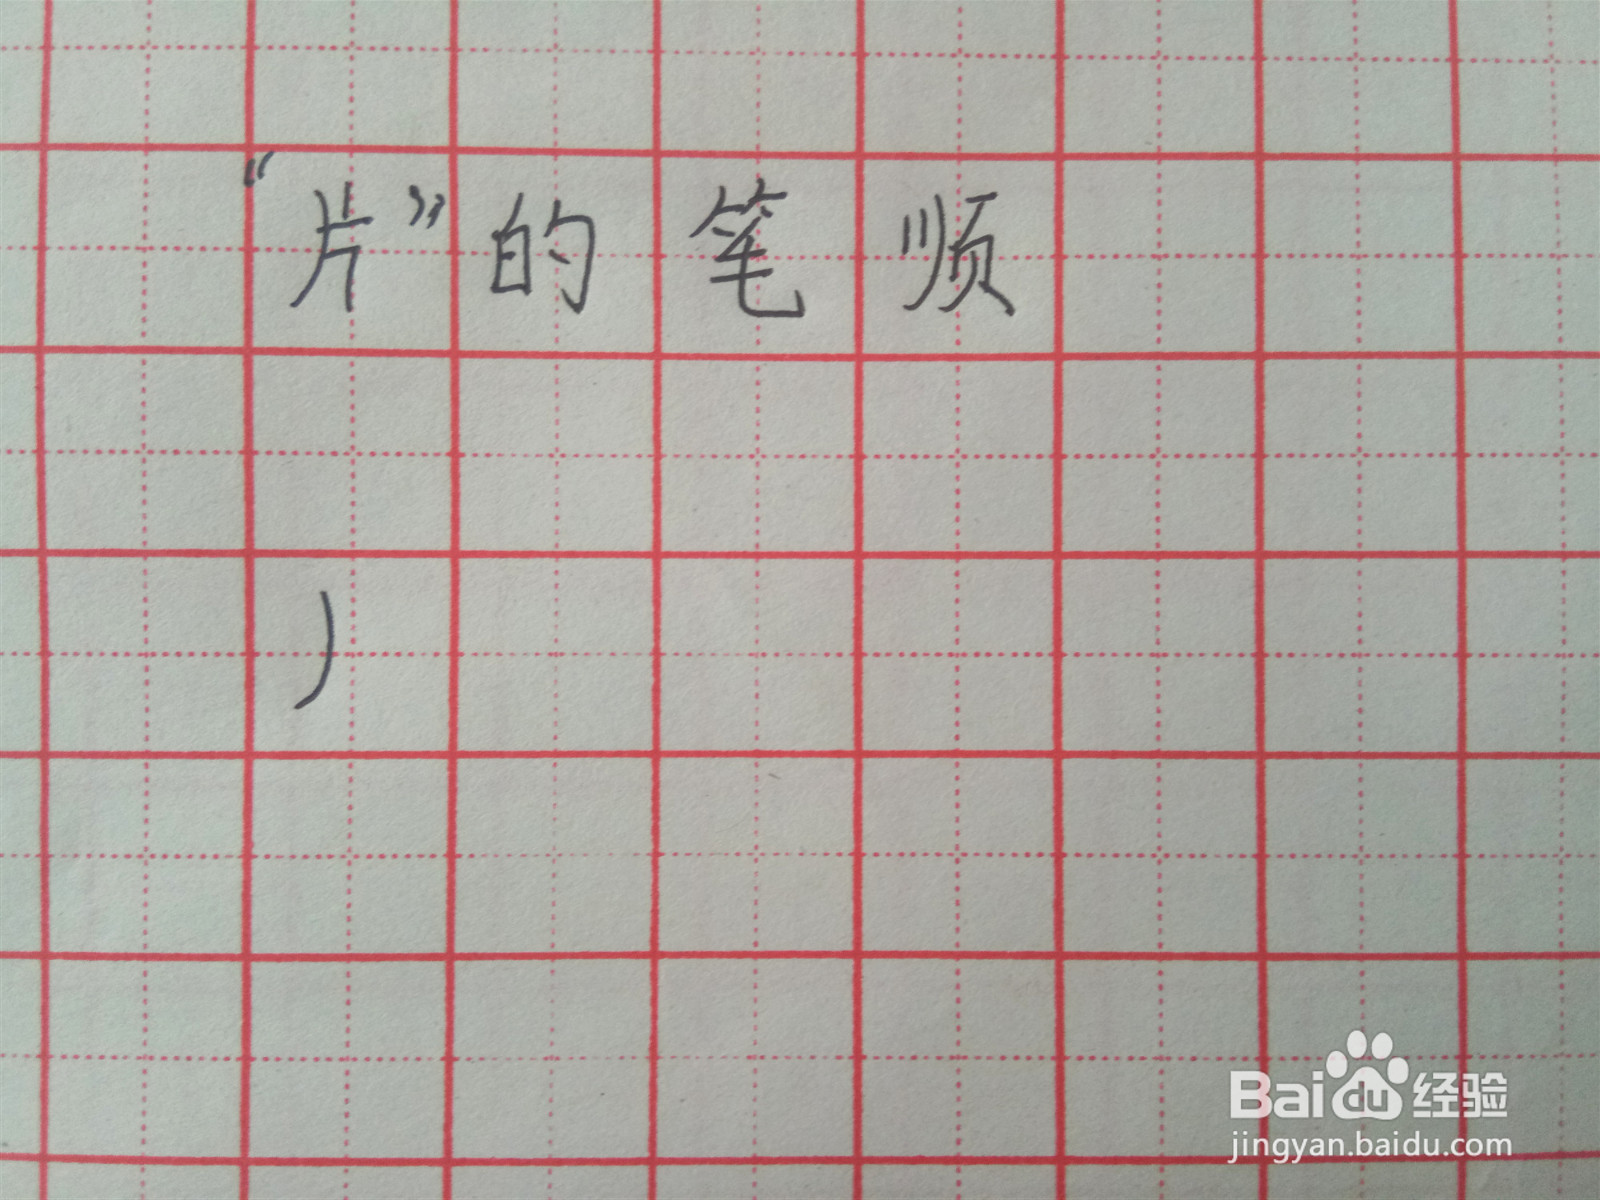 “片”的笔顺
丿
Bai du 经验
jingyan.baidu.com